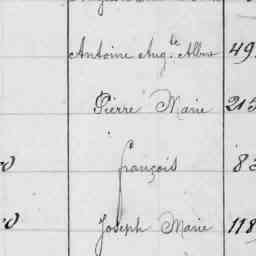 Antoine Aug.te Albin 49
Pierre Marie 213
françois 83
Joseph Marie 118